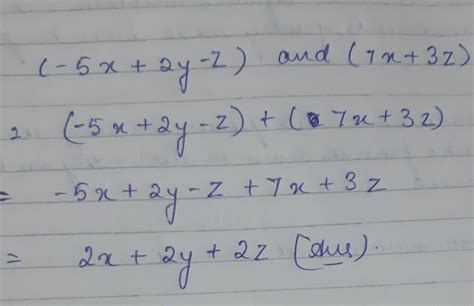 (-5x + 2y - z) and (7x + 3z)
= (-5x + 2y - z) + (7x + 3z)
= -5x + 2y - z + 7x + 3z
= 2x + 2y + 2z (Ans).